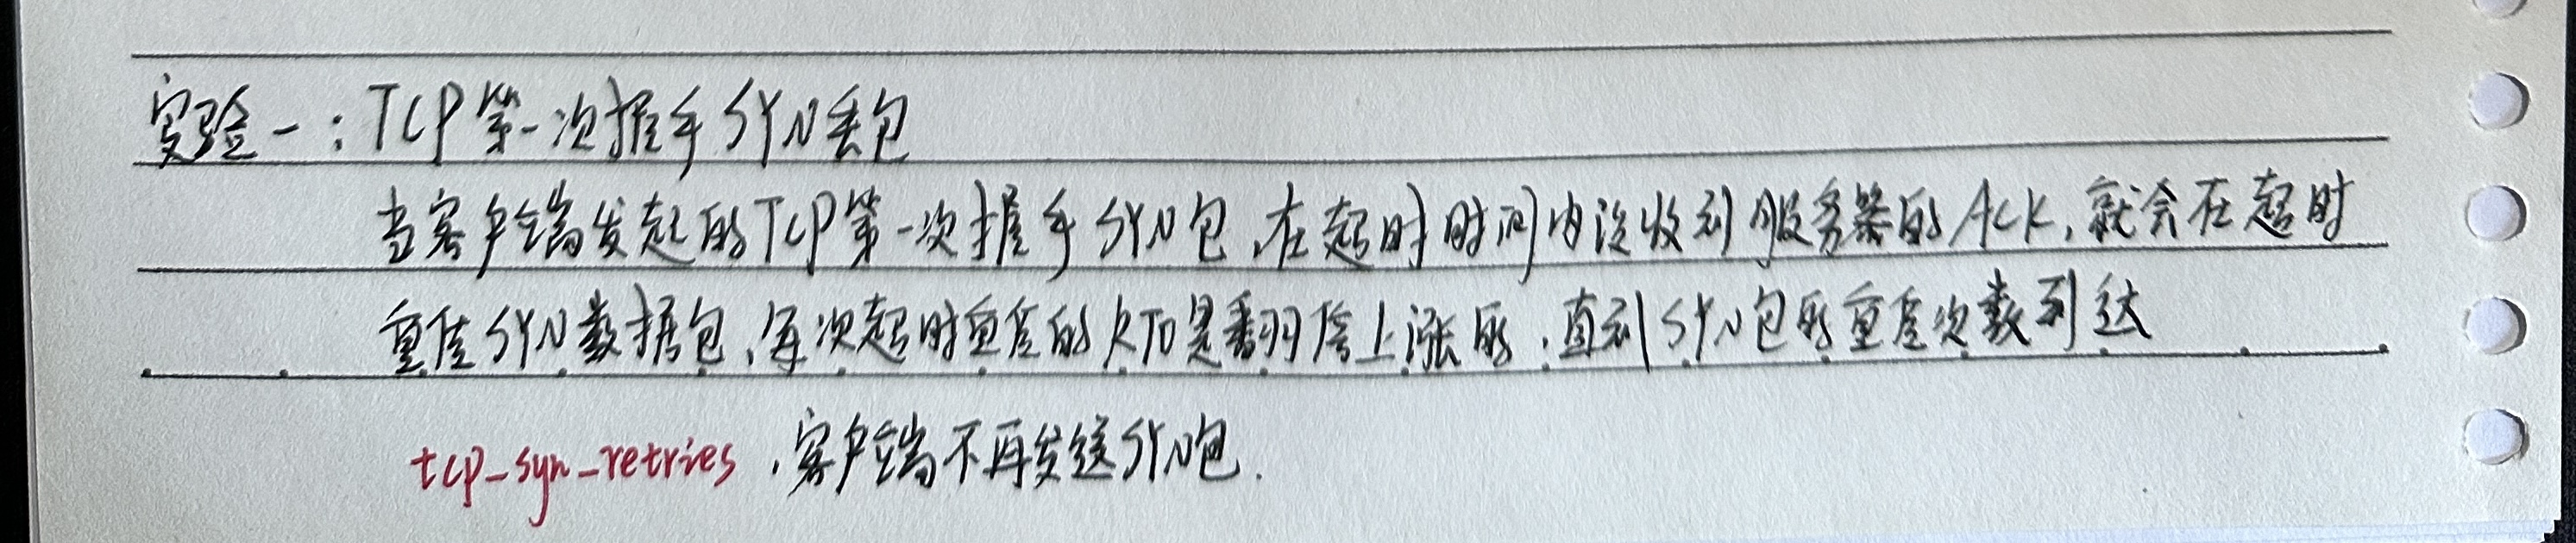 实验一：TCP第一次握手SYN丢包
当客户端发起的TCP第一次握手SYN包，在超时时间内没收到服务器的ACK，就会在超时
重传SYN数据包，每次超时重传的RTO是翻倍上涨的，直到SYN包的重传次数到达
tcp_syn_retries，客户端不再发送SYN包.